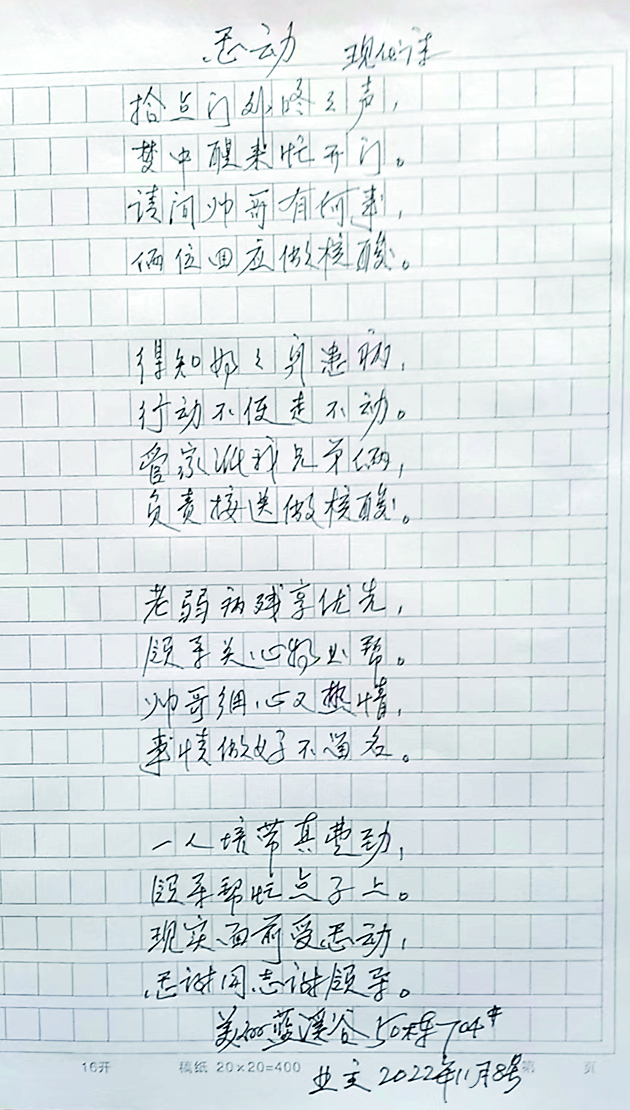 感动 现代诗
拾点门外咚々声，
梦中醒来忙开门。
请问帅哥有何事，
俩位回应做核酸。
得知奶々身患病，
行动不便走不动。
管家派我兄弟俩，
负责接送做核酸。
老弱病残享优先，
领导关心物业帮。
帅哥细心又热情，
事情做好不留名。
一人培带真费劲，
领导帮忙点子上。
现实面前受感动，
感谢同志谢领导。
美加蓝溪谷50栋704#
业主2022年11月8号
16开 稿纸 20×20=400 第 页